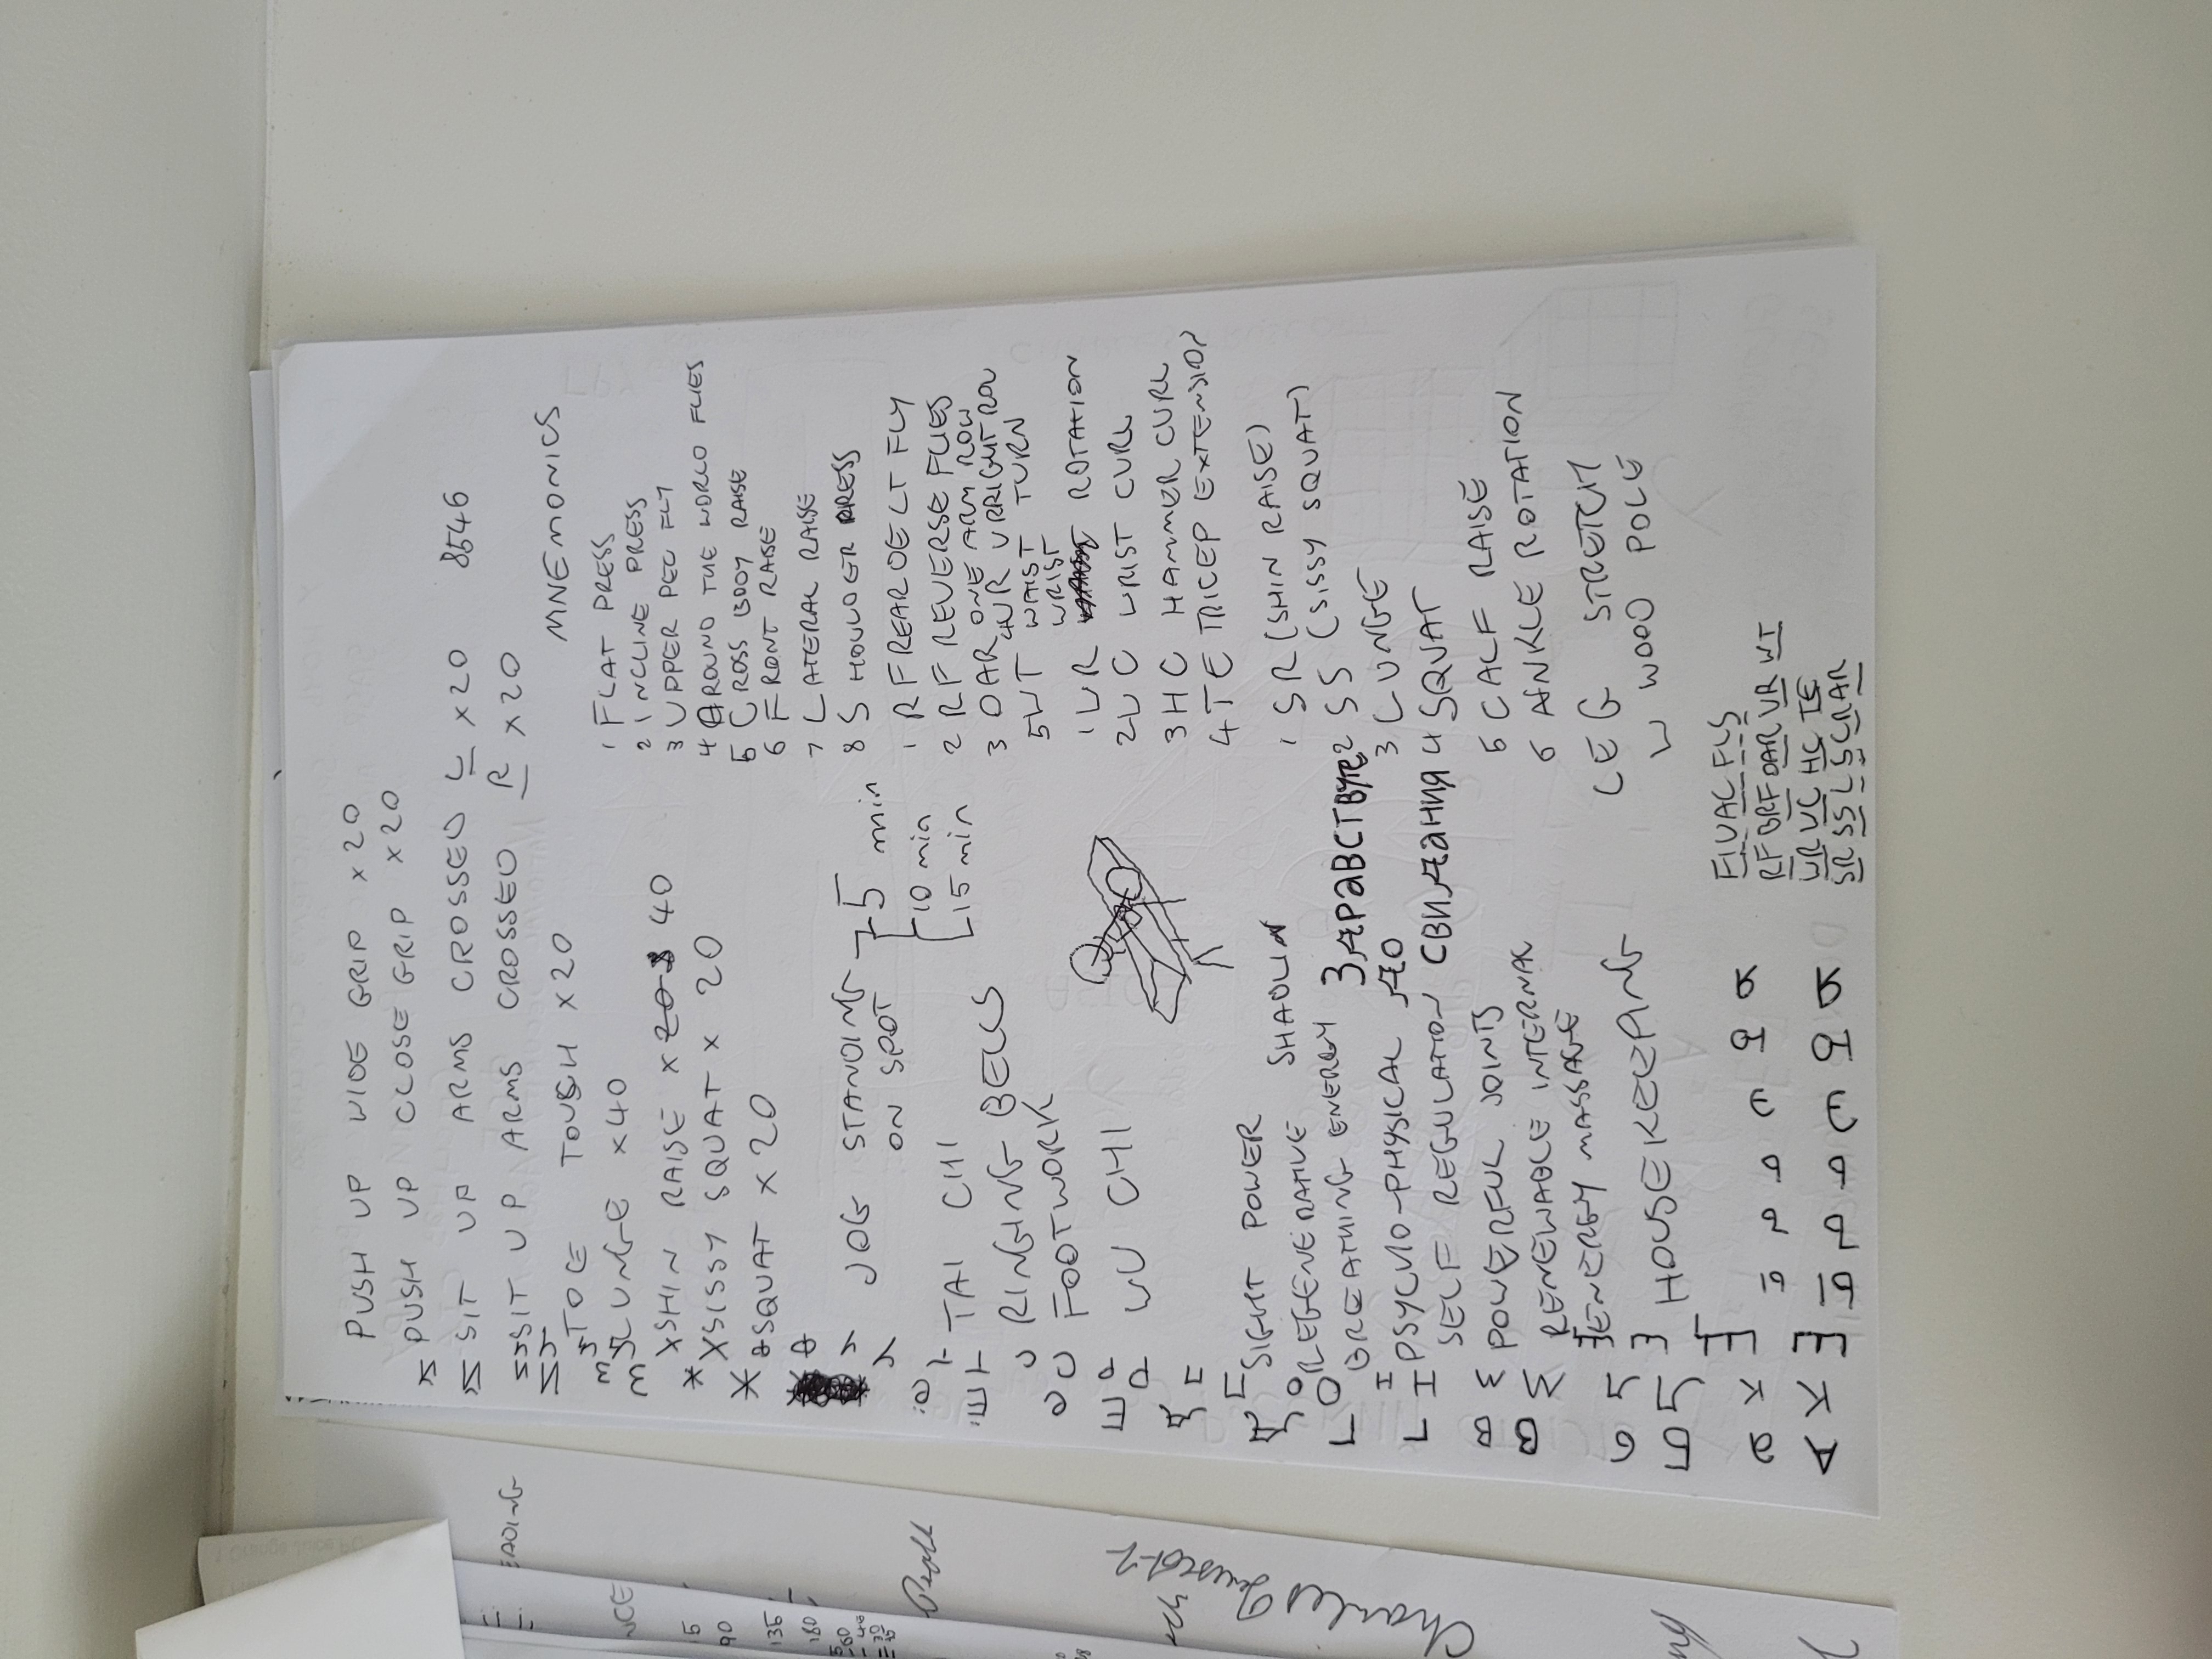 PUSH UP WIDE GRIP x 20
PUSH UP CLOSE GRIP x 20
SIT UP ARMS CROSSED L x20
8546
SIT UP ARMS CROSSED R x20
TOE TOUCH x 20
LUNGE x 40
SHIN RAISE x 40
SISSY SQUAT x 20
SQUAT x 20
JOG STANDING ON SPOT
5 min
10 min
15 min
TAI CHI
RINGING BELLS
FOOTWORK
WU CHI
SIGHT POWER
REGENERATIVE SHAOLIN
BREATHING ENERGY
PSYCHO-PHYSICAL
SELF REGULATION
POWERFUL JOINTS
RENEWABLE INTERNAL
ENERGY MASSAGE
HOUSEKEEPING
Здравствуте
до
свидания
MNEMONICS
1 FLAT PRESS
2 INCLINE PRESS
3 UPPER PEC FLY
4 AROUND THE WORLD FLIES
5 CROSS BODY RAISE
6 FRONT RAISE
7 LATERAL RAISE
8 SHOULDER PRESS
1 RF REAR DELT FLY
2 RF REVERSE FLIES
3 OAR ONE ARM ROW
4 UR UPRIGHT ROW
5 WT WAIST TURN
1 WR WRIST ROTATION
2 WC WRIST CURL
3 HC HAMMER CURL
4 TE TRICEP EXTENSION
1 SR (SHIN RAISE)
2 SS (SISSY SQUAT)
3 LUNGE
4 SQUAT
5 CALF RAISE
6 ANKLE ROTATION
LEG STRETCH
W WOOD POLE
FIUAC FLS
RF BRF OAR UR WT
WR WC HC TE
SR SS L S CR AR
А а Б б В в Г г Д д Е е Ё ё Ж ж З з И и Й й
К к Л л М м Н н О о П п Р р С с Т т У у Ф ф Х х
Щ щ Ш ш
Ы ы
Ъ ъ
Ь ь
Э э
Ю ю
Я я
EADING
NCE
90
135
180
Charles